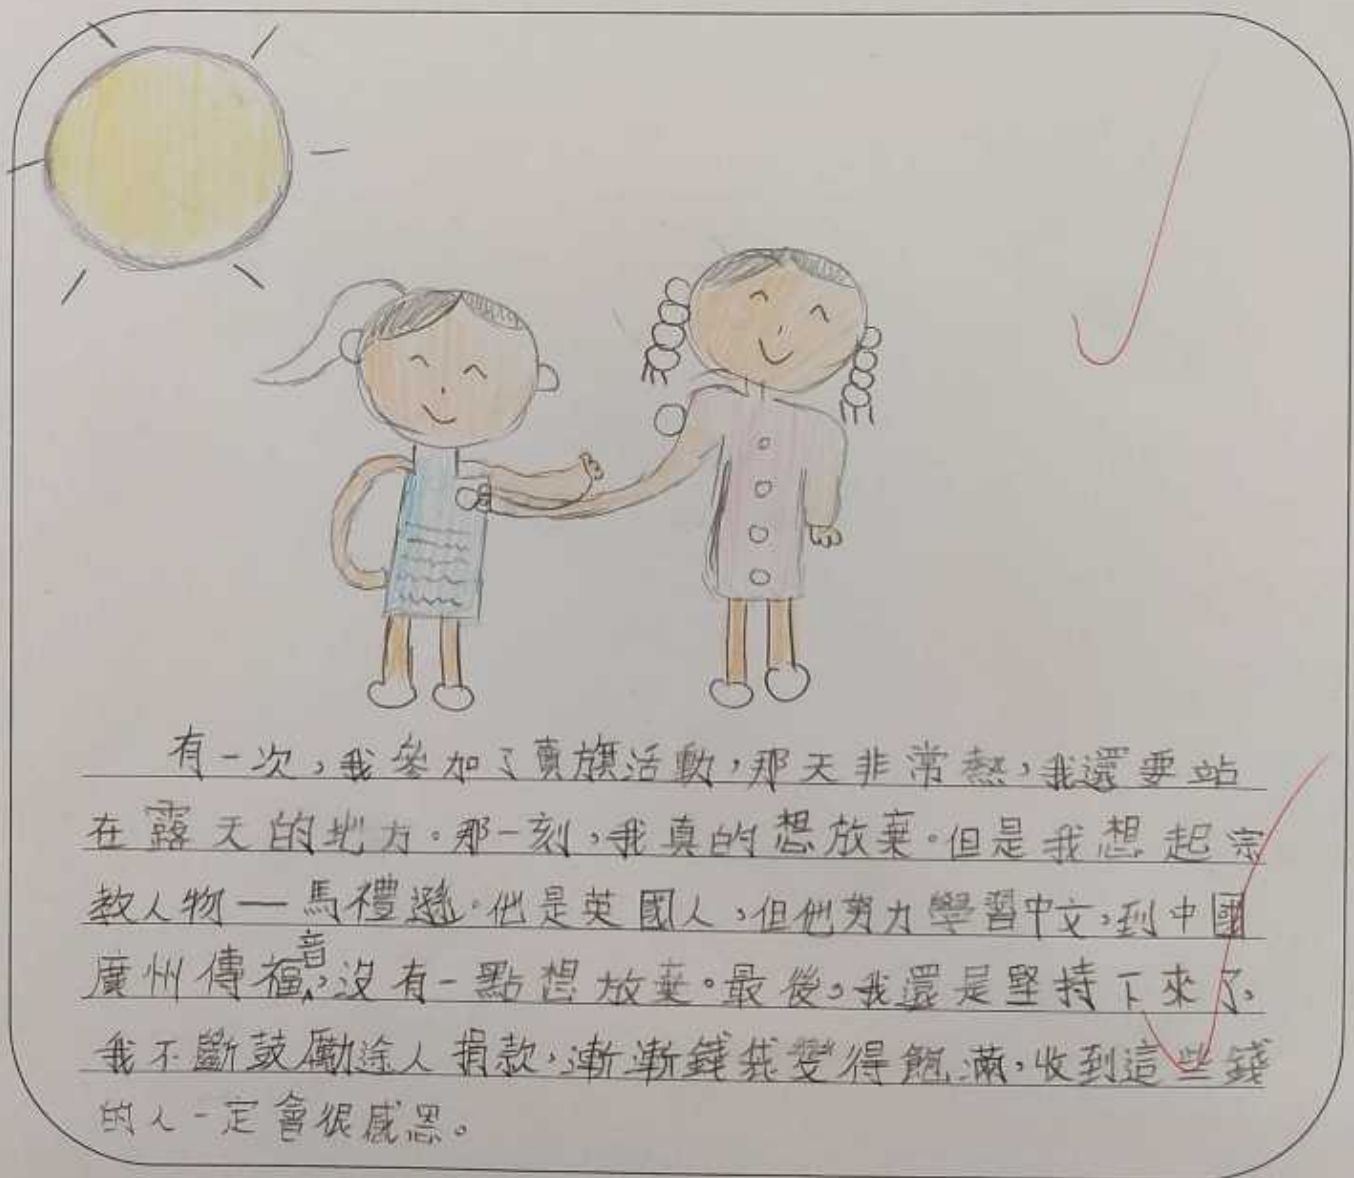 有一次，我參加了賣旗活動，那天非常熱，我還要站
在露天的地方。那一刻，我真的想放棄。但是我想起宗
教人物—馬禮遜。他是英國人，但他努力學習中文，到中國
廣州傳福音，沒有一點想放棄。最後，我還是堅持下來了。
我不斷鼓勵途人捐款，漸漸錢袋變得飽滿，收到這些錢
的人一定會很感恩。